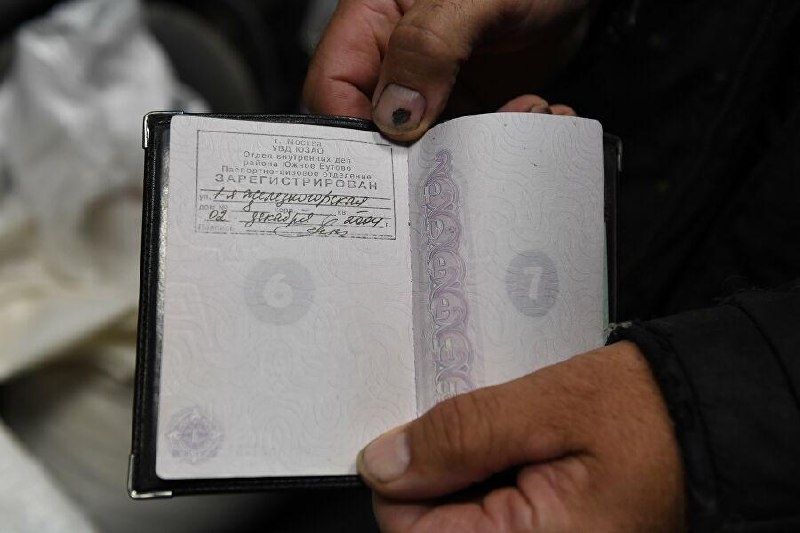 г. Москва
УВД ЮЗАО
Отдел внутренних дел
района Южное Бутово
Паспортно-визовое отделение
ЗАРЕГИСТРИРОВАН
ул. 1-я Железногорская
дом № кв.
02 декабря 2004 г.
6
7